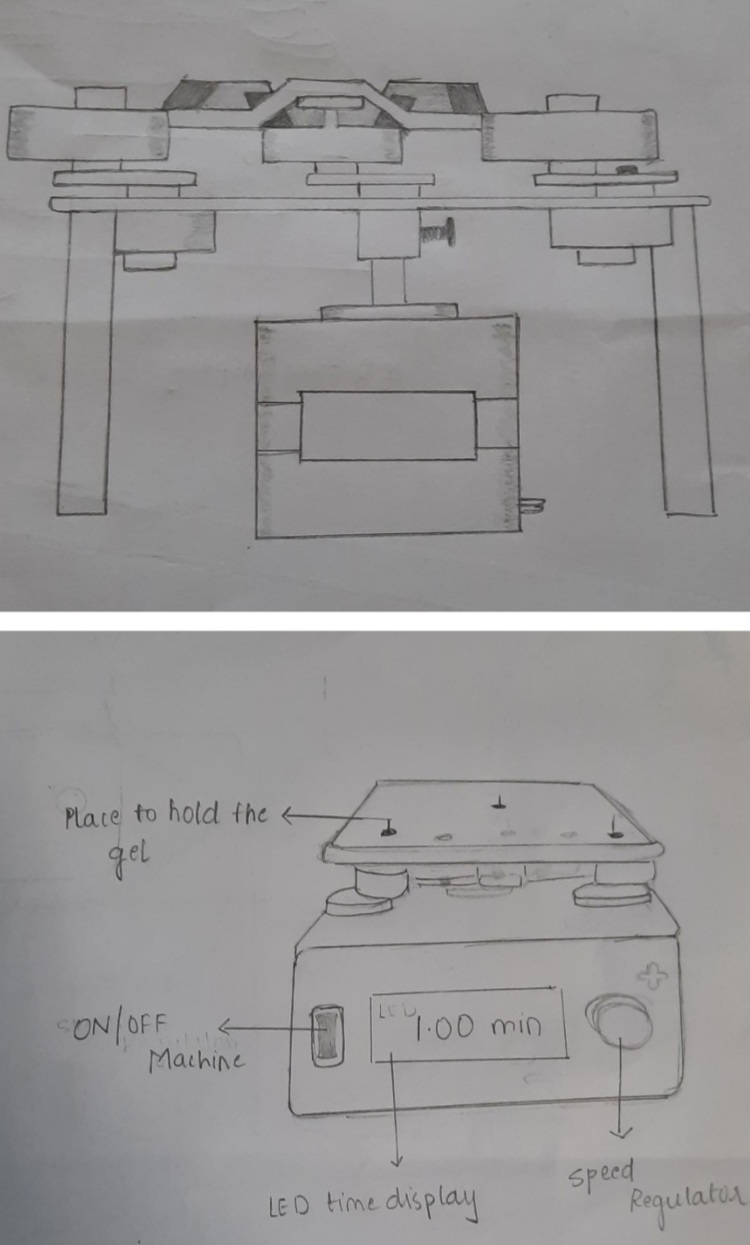 Place to hold the
gel
ON/OFF
Machine
LED
1.00 min
LED time display
speed
Regulator